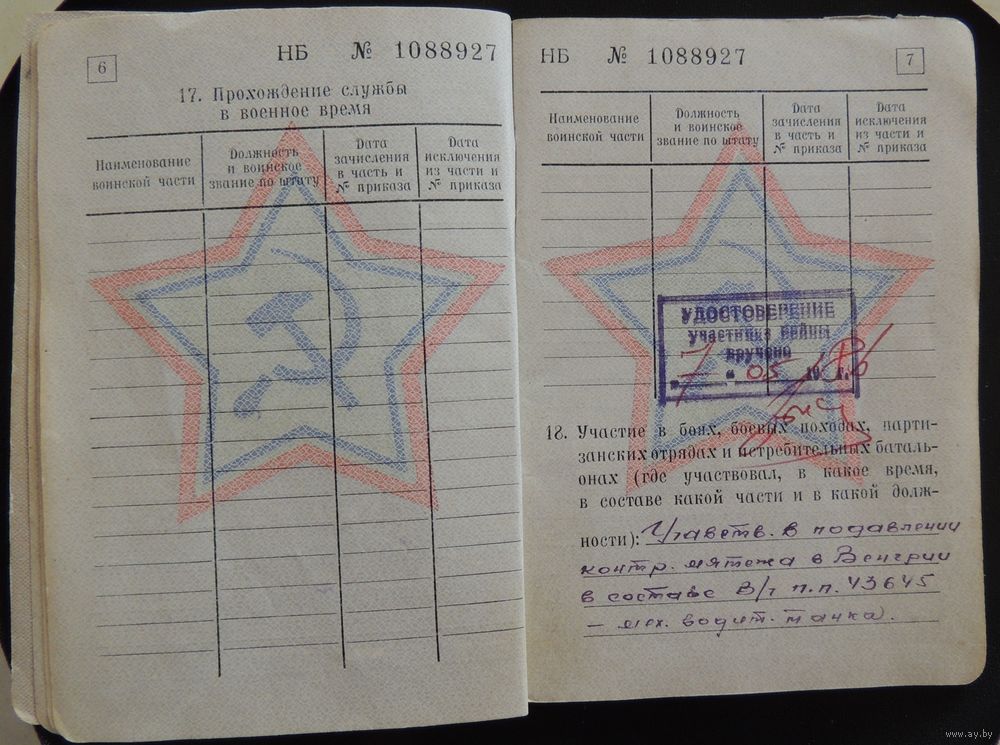 6
НБ № 1088927
17. Прохождение службы
в военное время
Наименование
воинской части
Должность
и воинское
звание по штату
Дата
зачисления
в часть и
№ приказа
Дата
исключения
из части и
№ приказа
НБ № 1088927
7
Наименование
воинской части
Должность
и воинское
звание по штату
Дата
зачисления
в часть и
№ приказа
Дата
исключения
из части и
№ приказа
УДОСТОВЕРЕНИЕ
участника войны
вручено
" 7 " 05 1986 г.
18. Участие в боях, боевых походах, парти-
занских отрядах и истребительных баталь-
онах (где участвовал, в какое время,
в составе какой части и в какой долж-
ности): Участв. в подавлении
контр. мятежа в Венгрии
в составе В/ч п.п. 43645
– мех. водит. танка.
www.ay.by